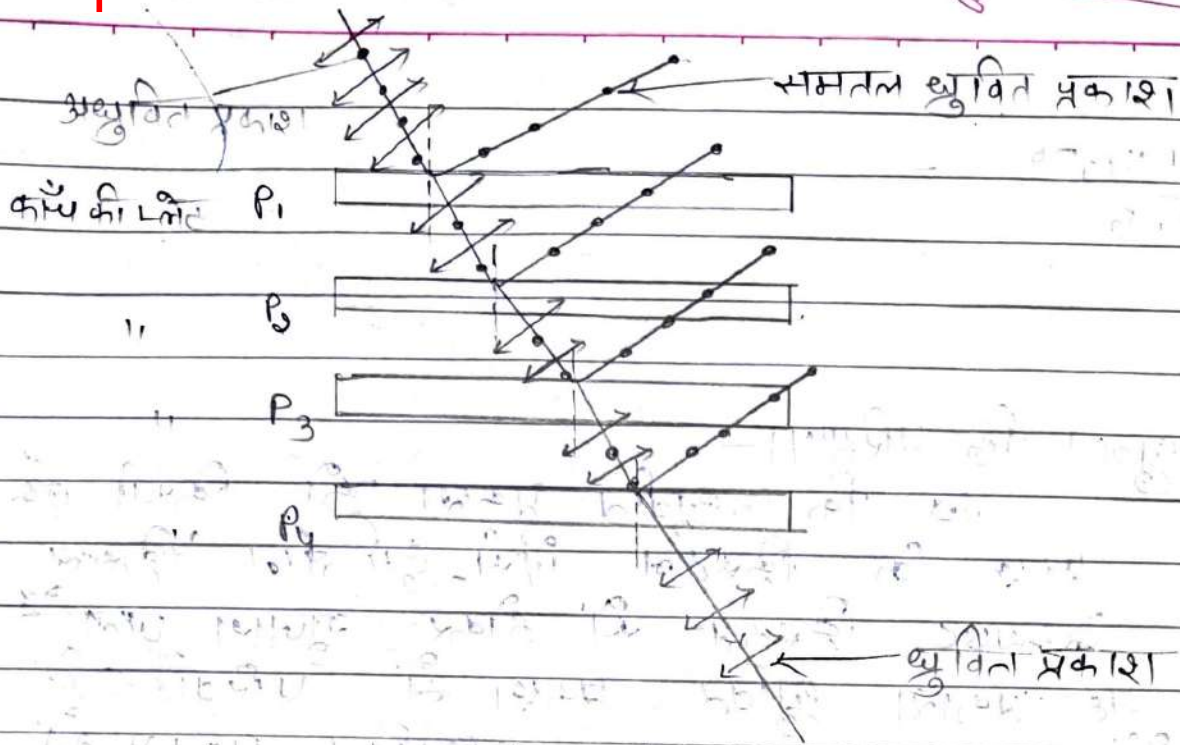 समतल ध्रुवित प्रकाश
अध्रुवित प्रकाश
काँच की प्लेट P1
" P2
" P3
" P4
ध्रुवित प्रकाश